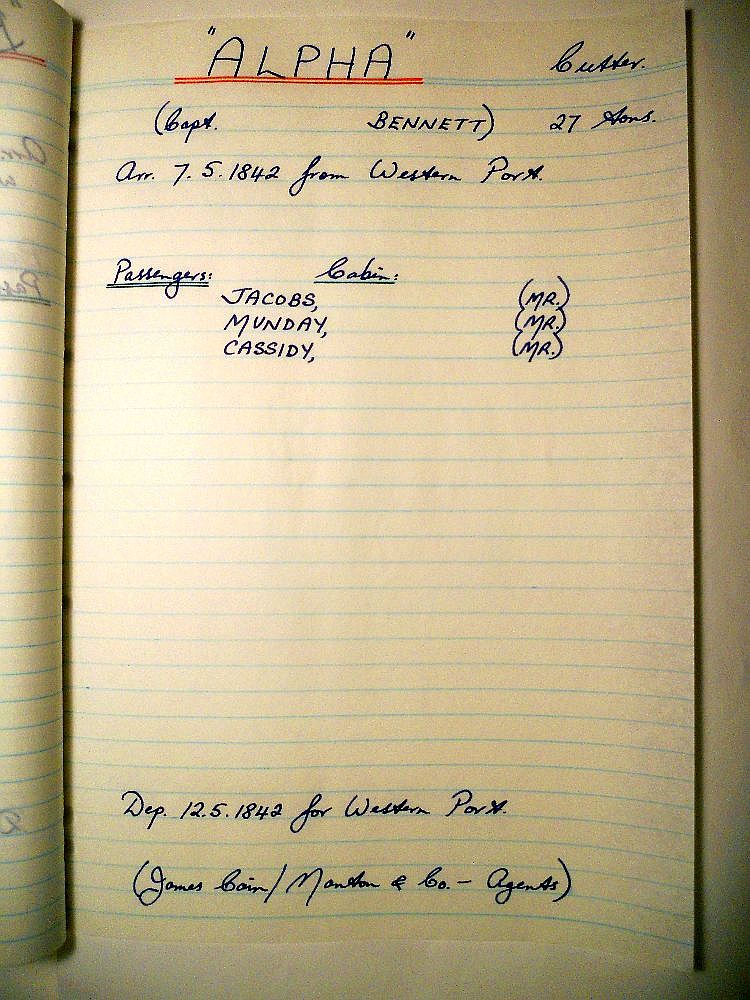 "ALPHA" Cutter.
(Capt. BENNETT) 27 tons.
Arr. 7.5.1842 from Western Port.
Passengers: Cabin:
JACOBS, (MR.)
MUNDAY, (MR.)
CASSIDY, (MR.)
Dep. 12.5.1842 for Western Port.
(James Cain/Manton & Co. - Agents)